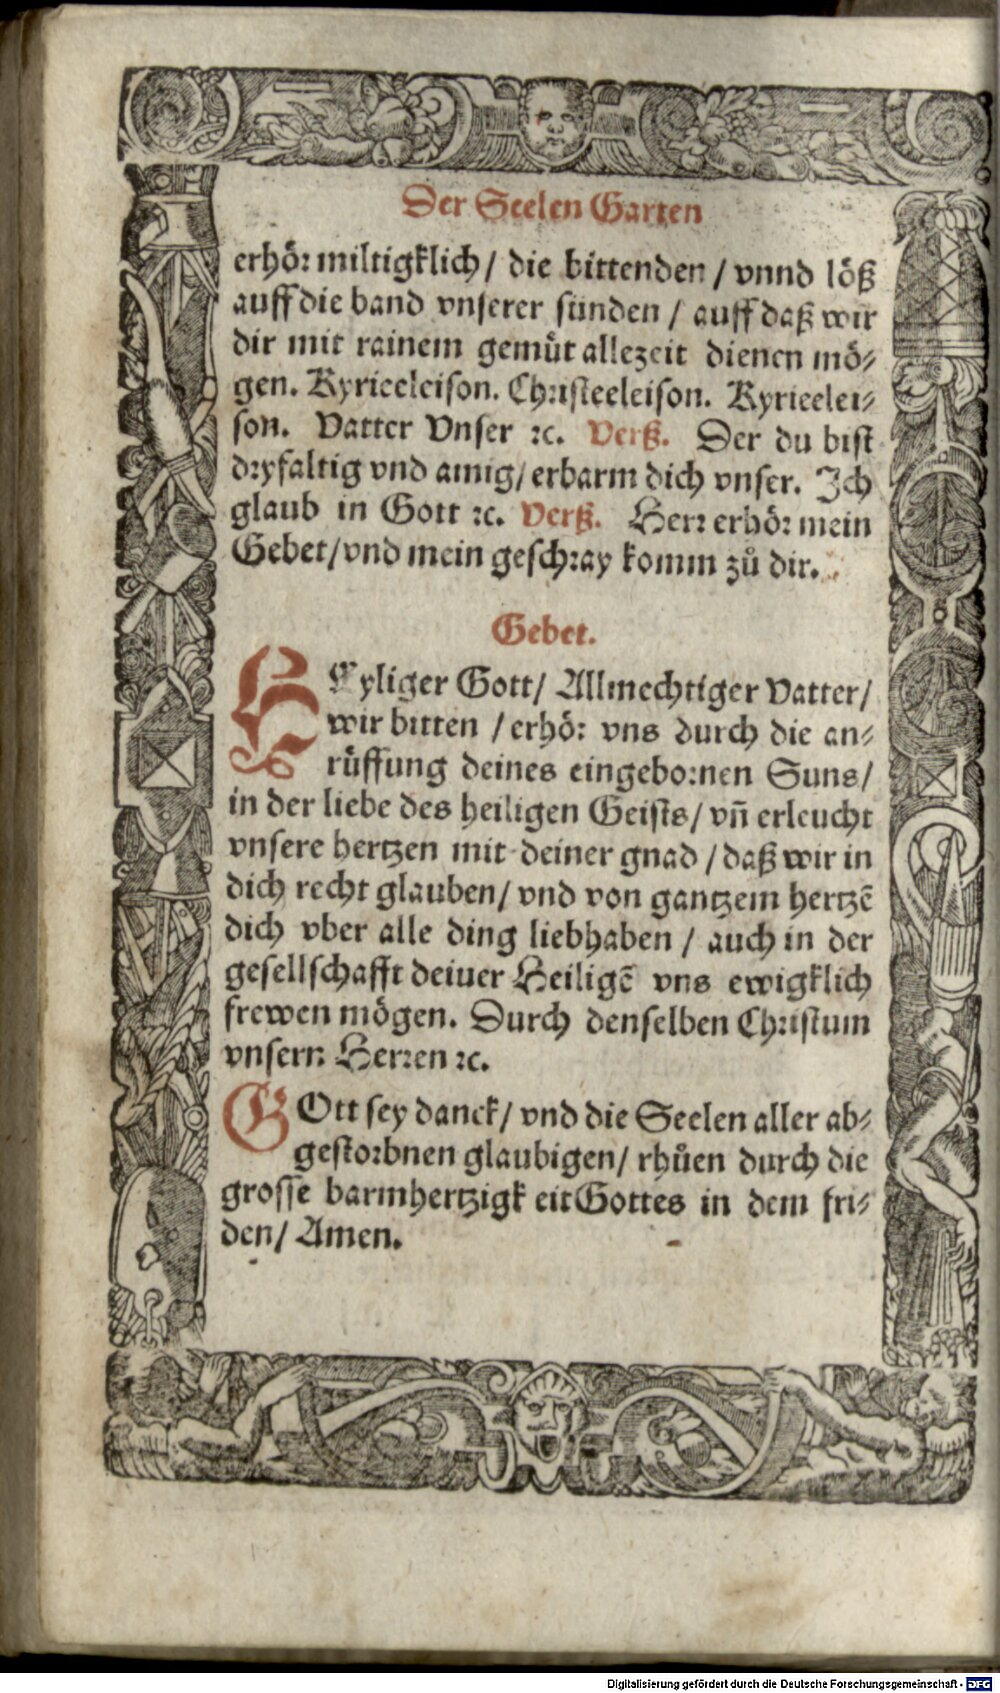 Der Seelen Garten
erhör miltigklich / die bittenden / vnnd löß
auff die band vnserer sünden / auff daß wir
dir mit rainem gemüt allezeit dienen mö⸗
gen. Kyrieeleison. Christeeleison. Kyrieelei⸗
son. Vatter Vnser ꝛc. Verß. Der du bist
dryfaltig vnd ainig / erbarm dich vnser. Ich
glaub in Gott ꝛc. Verß. Herr erhör mein
Gebet / vnd mein geschray komm zů dir.
Gebet.
HEyliger Gott / Allmechtiger Vatter /
wir bitten / erhör vns durch die an⸗
rüffung deines eingebornen Suns /
in der liebe des heiligen Geists / vñ erleucht
vnsere hertzen mit deiner gnad / daß wir in
dich recht glauben / vnd von gantzem hertzẽ
dich vber alle ding liebhaben / auch in der
gesellschafft deiuer Heiligẽ vns ewigklich
frewen mögen. Durch denselben Christum
vnsern Herren ꝛc.
GOtt sey danck / vnd die Seelen aller ab⸗
gestorbnen glaubigen / rhůen durch die
grosse barmhertzigk eit Gottes in dem fri⸗
den / Amen.
Digitalisierung gefördert durch die Deutsche Forschungsgemeinschaft - DFG